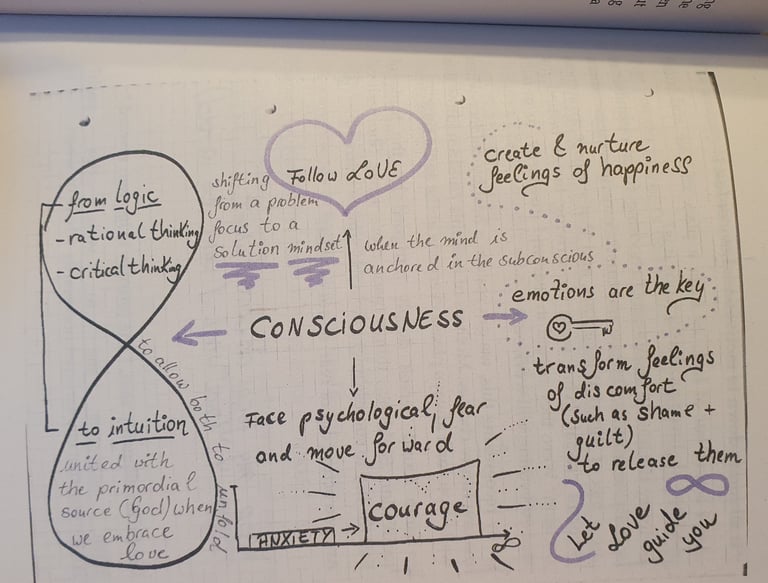 Follow LOVE
shifting
from a problem
focus to a
solution mindset
when the mind is
anchored in the subconscious
create & nurture
feelings of happiness
from logic
- rational thinking
- critical thinking
CONSCIOUSNESS
emotions are the key
transform feelings
of discomfort
(such as shame +
guilt)
to release them
to allow both to
unfold
to intuition
united with
the primordial
source (God) when
we embrace
love
Face psychological fear
and move forward
ANXIETY
courage
Let
Love
guide
you